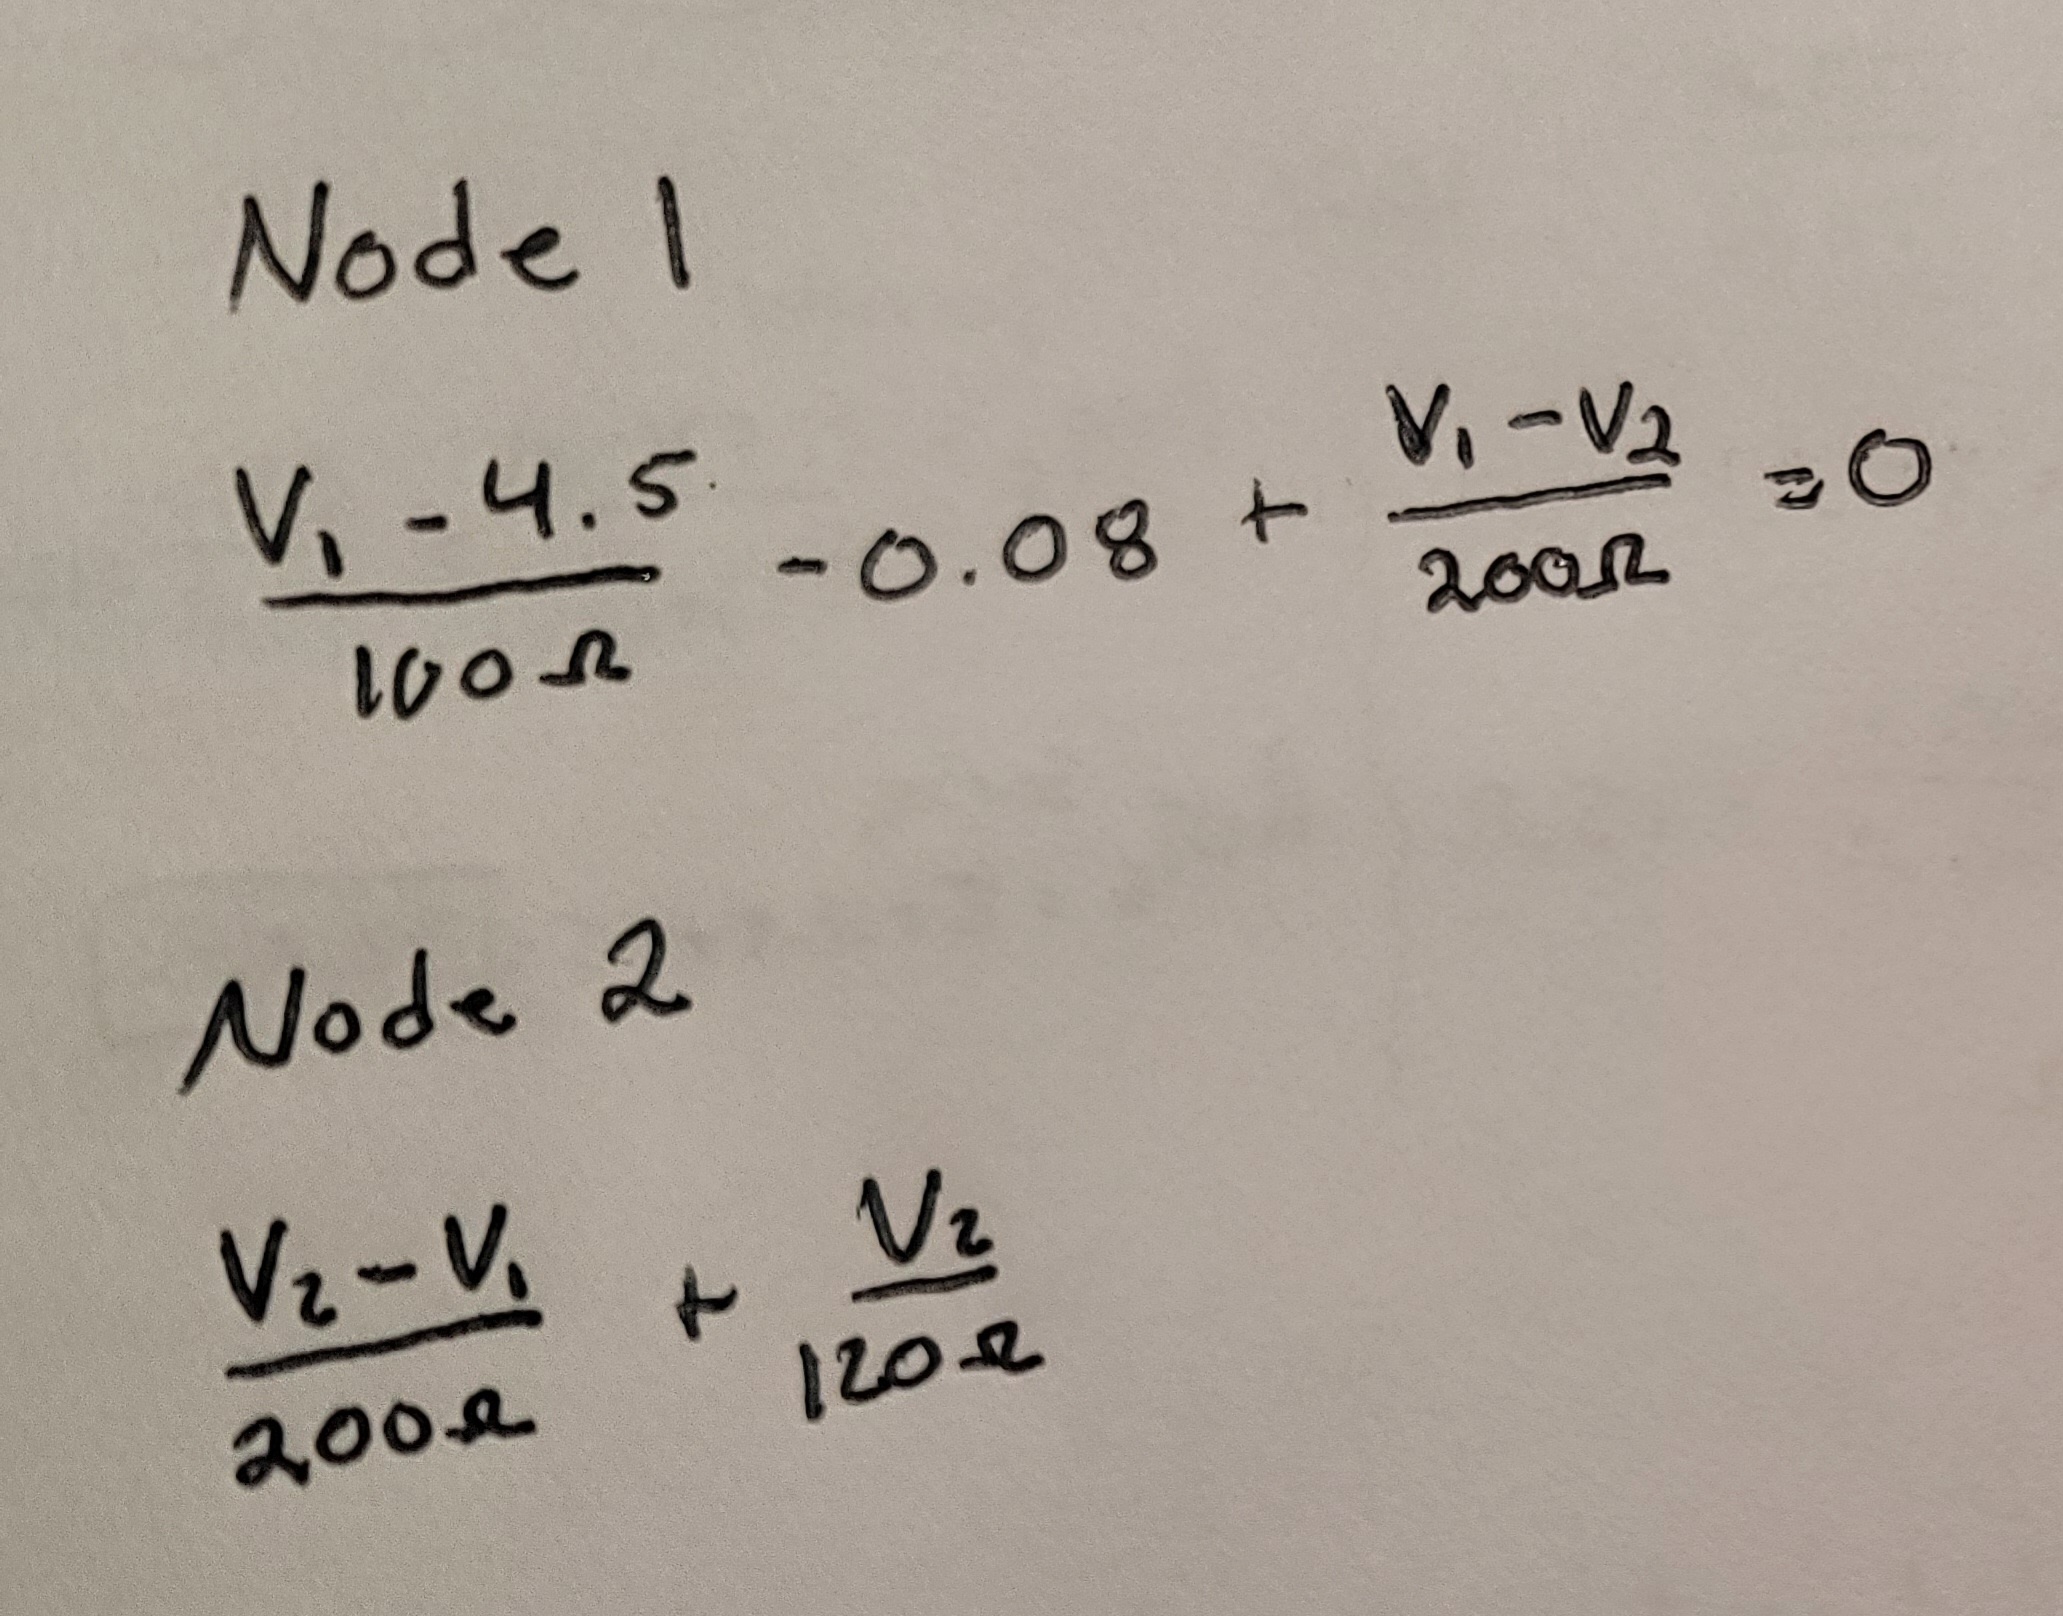 Node 1
(V₁ - 4.5)/100Ω - 0.08 + (V₁ - V₂)/200Ω = 0
Node 2
(V₂ - V₁)/200Ω + V₂/120Ω